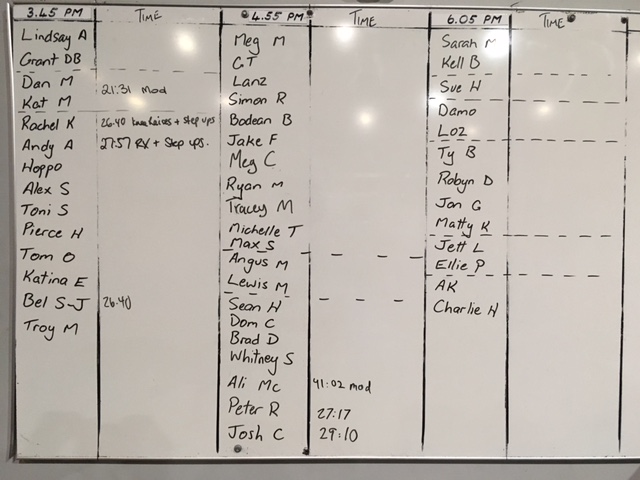 3.45 PM TIME
Lindsay A
Grant DB
Dan M 21:31 mod
Kat M
Rachel K 26.40 knee Raises + step ups
Andy A 27:57 RX + Step ups.
Hoppo
Alex S
Toni S
Pierce H
Tom O
Katina E
Bel S-J 26.40
Troy M
4.55 PM TIME
Meg M
GT
Lanz
Simon R
Bodean B
Jake F
Meg C
Ryan M
Tracey M
Michelle T
Max S
Angus M
Lewis M
Sean H
Dom C
Brad D
Whitney S
Ali Mc 41:02 mod
Peter R 27:17
Josh C 29:10
6.05 PM TIME
Sarah M
Kell B
Sue H
Damo
Loz
Ty B
Robyn D
Jon G
Matty K
Jett L
Ellie P
AK
Charlie H